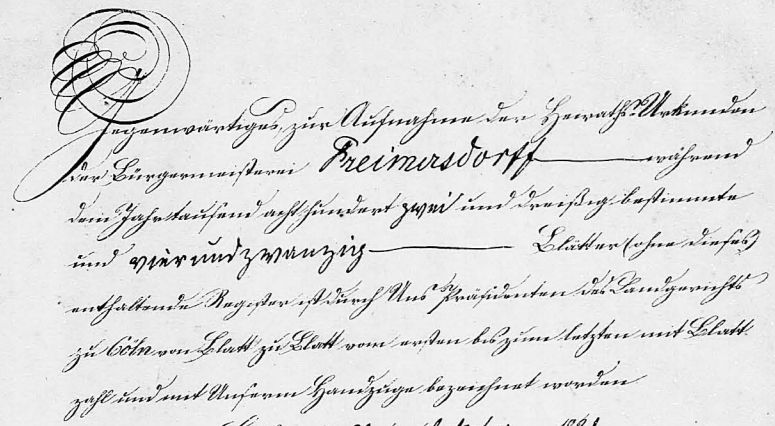 Gegenwärtiges, zur Aufnahme der Heiraths-Urkunden
der Bürgermeisterei Freimersdorff während
dem Jahr tausend acht hundert zwei und dreißig bestimmte
und vier und zwanzig Blätter (ohne dieses)
enthaltende Register ist durch Uns Präsidenten des Landgerichts
zu Cöln von Blatt zu Blatt vom ersten bis zum letzten mit Blatt
zahl und mit Unserm Handzuge bezeichnet worden